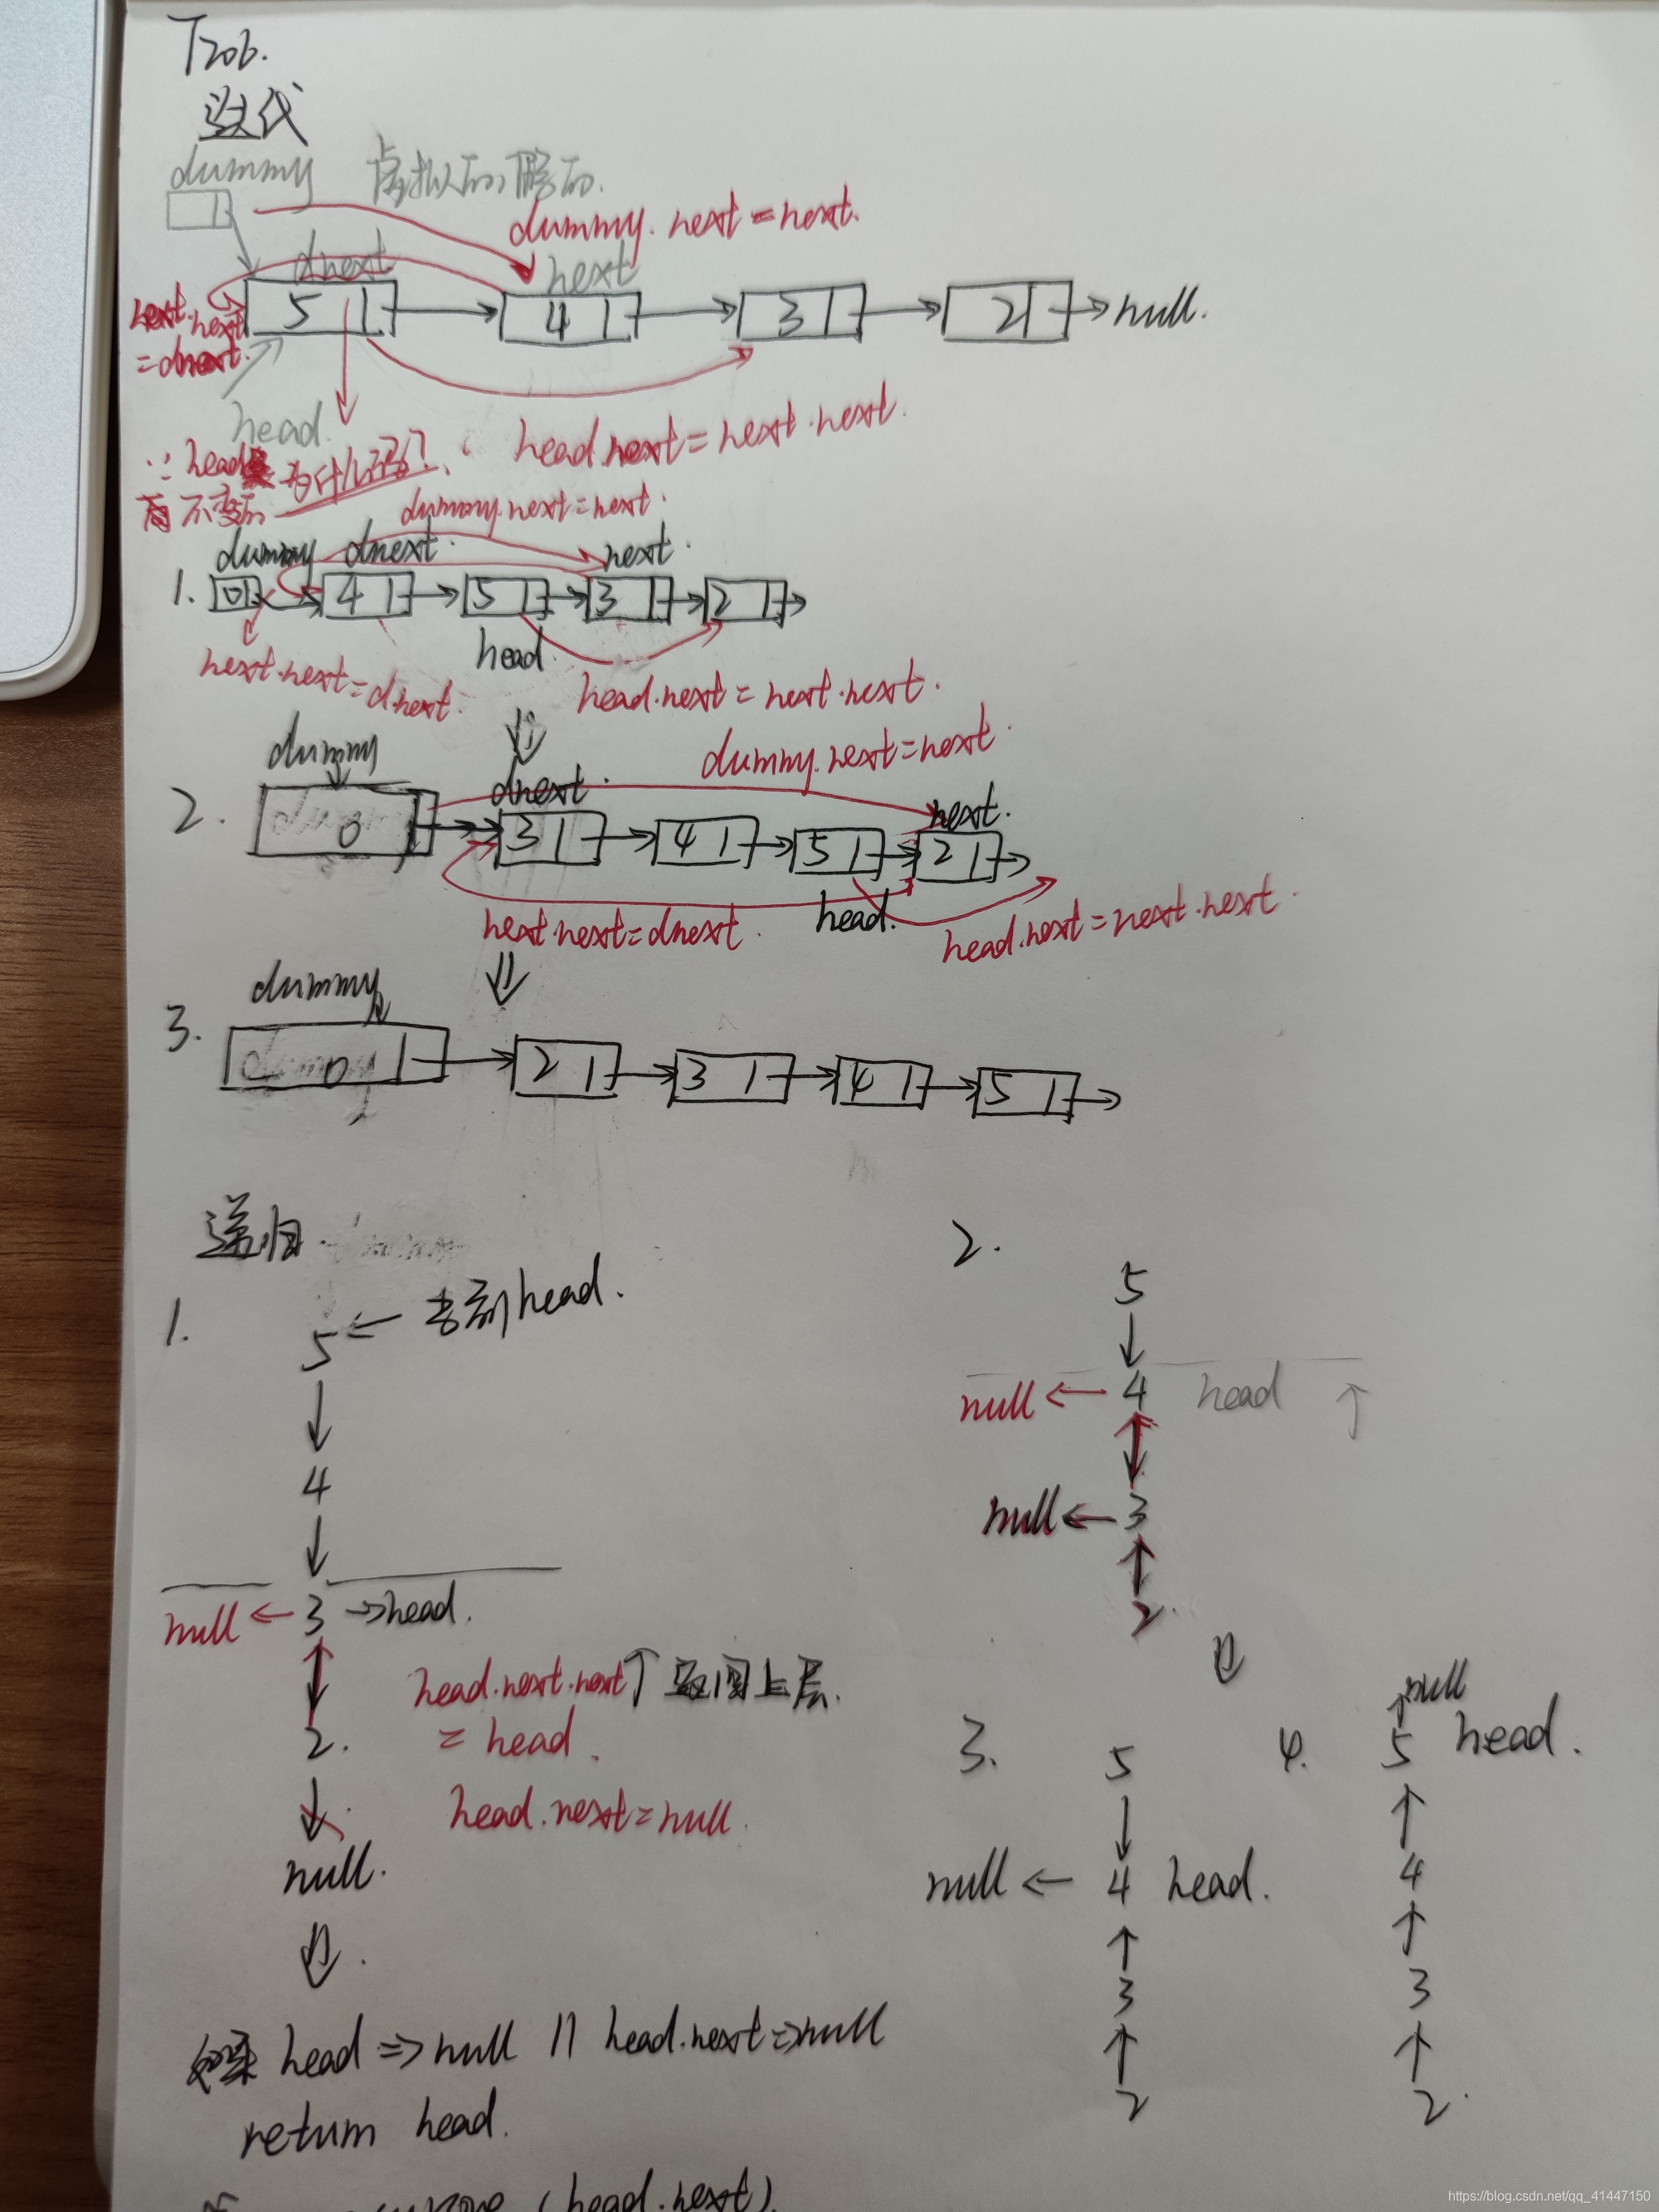 T206.
迭代
dummy
dummy.next=next.
dnext
next
next.next
=dnext.
5 4 3 2 null.
head
head.next=next.next.
dummy.next=next.
dummy dnext. next.
1. 0 4 5 3 2
head
next.next=dnext.
head.next=next.next.
dummy
dummy.next=next.
dnext. next.
2. 0 3 4 5 2
next.next=dnext.
head.
head.next=next.next.
dummy
3. 0 2 3 4 5
递归.
1.
5 ← 当前head.
4
null ← 3 →head.
head.next.next ↑ 返回上层.
2. = head.
head.next=null.
null.
如果 head => null || head.next=>null
return head.
(head.next)
2.
5
null ← 4 head ↑
null ← 3
2.
3.
5
null ← 4 head.
3
2
4.
null
5 head.
4
3
2.
https://blog.csdn.net/qq_41447150